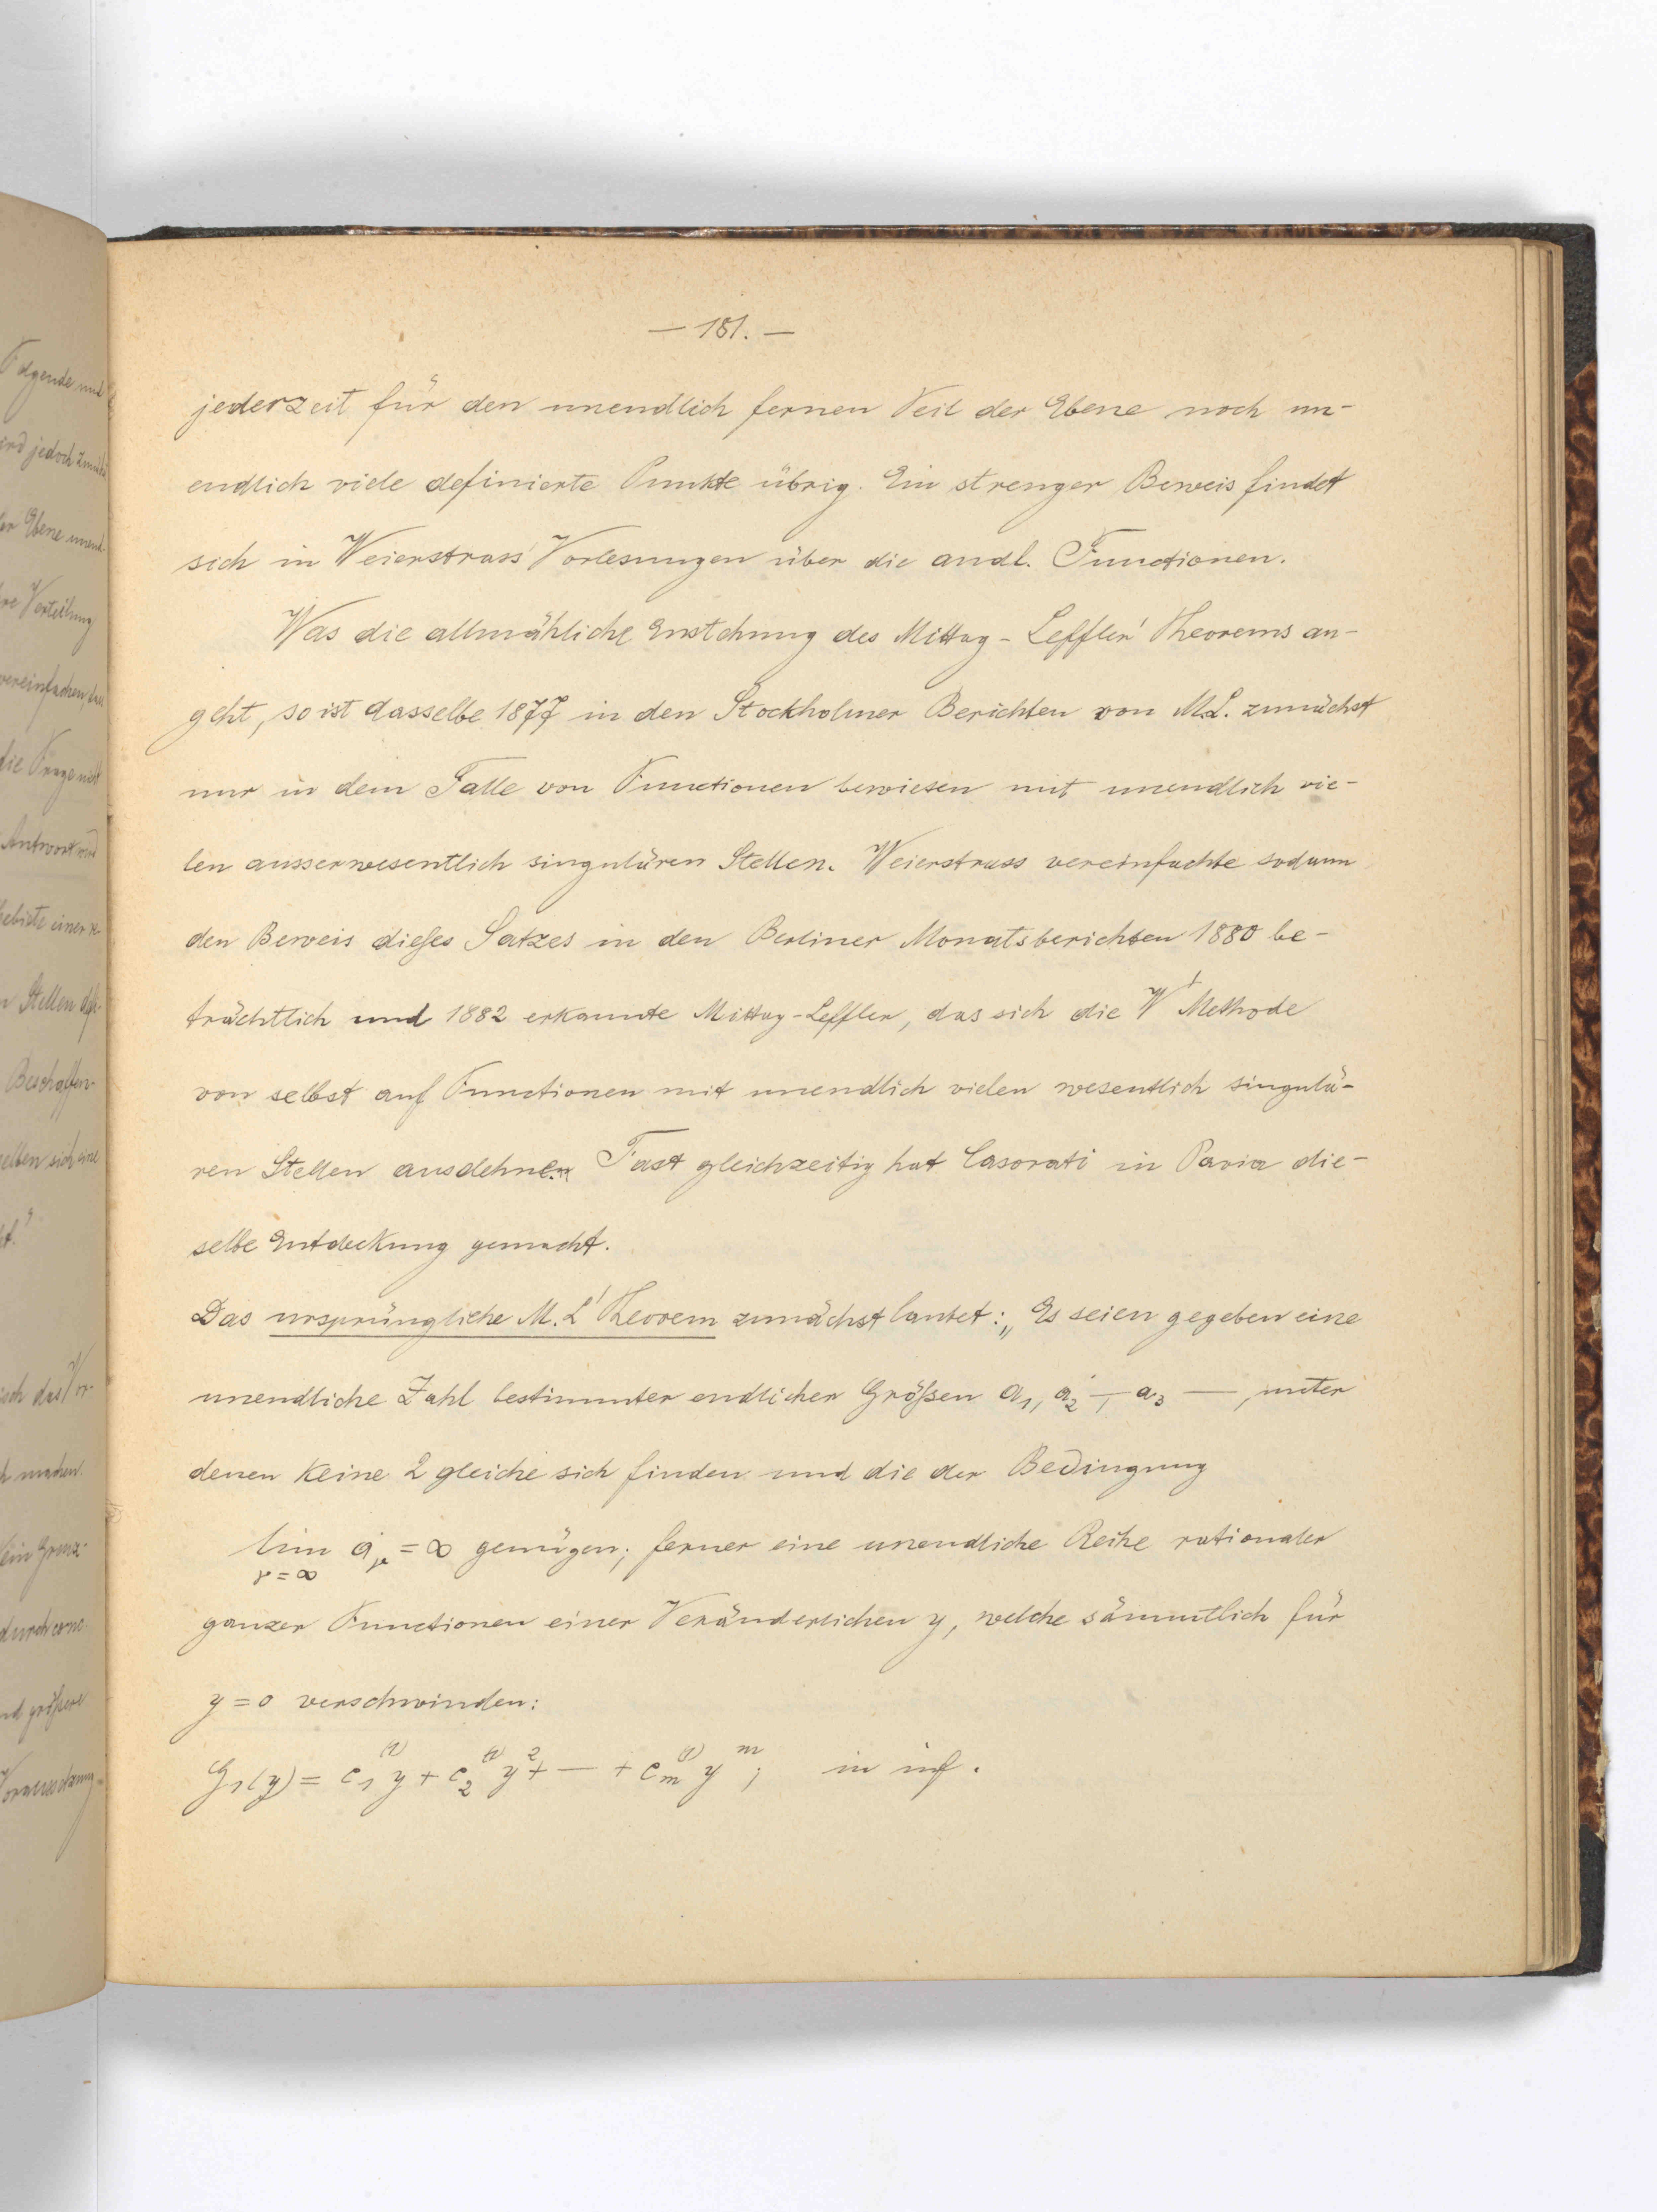 — 181. —
jederzeit für den unendlich fernen Teil der Ebene noch un-
endlich viele definierte Punkte übrig. Ein strenger Beweis findet
sich in Weierstrass' Vorlesungen über die andl. Functionen.
Was die allmähliche Enstehung des Mittag-Leffler' Theorems an-
geht, so ist dasselbe 1877 in den Stockholmer Berichten von M.L. zunächst
nur in dem Falle von Functionen bewiesen mit unendlich vie-
len ausserwesentlich singulären Stellen. Weierstrass vereinfachte sodann
den Beweis dieses Satzes in den Berliner Monatsberichten 1880 be-
trächtlich und 1882 erkannte Mittag-Leffler, das sich die W' Methode
von selbst auf Functionen mit unendlich vielen wesentlich singulä-
ren Stellen ausdehnen. Fast gleichzeitig hat Casorati in Pavia die-
selbe Entdeckung gemacht.
Das ursprüngliche M. L' Theorem zunächst lautet: „Es seien gegeben eine
unendliche Zahl bestimmter endlicher Größen a₁, a₂, — a₃ —, unter
denen keine 2 gleiche sich finden und die der Bedingung
lim aᵥ = ∞ genügen; ferner eine unendliche Reihe rationaler
ν = ∞
ganzer Functionen einer Veränderlichen y, welche sämmtlich für
y = 0 verschwinden:
G₁(y) = c₁⁽¹⁾ y + c₂⁽¹⁾ y² + — + cₘ⁽¹⁾ yᵐ; in inf.